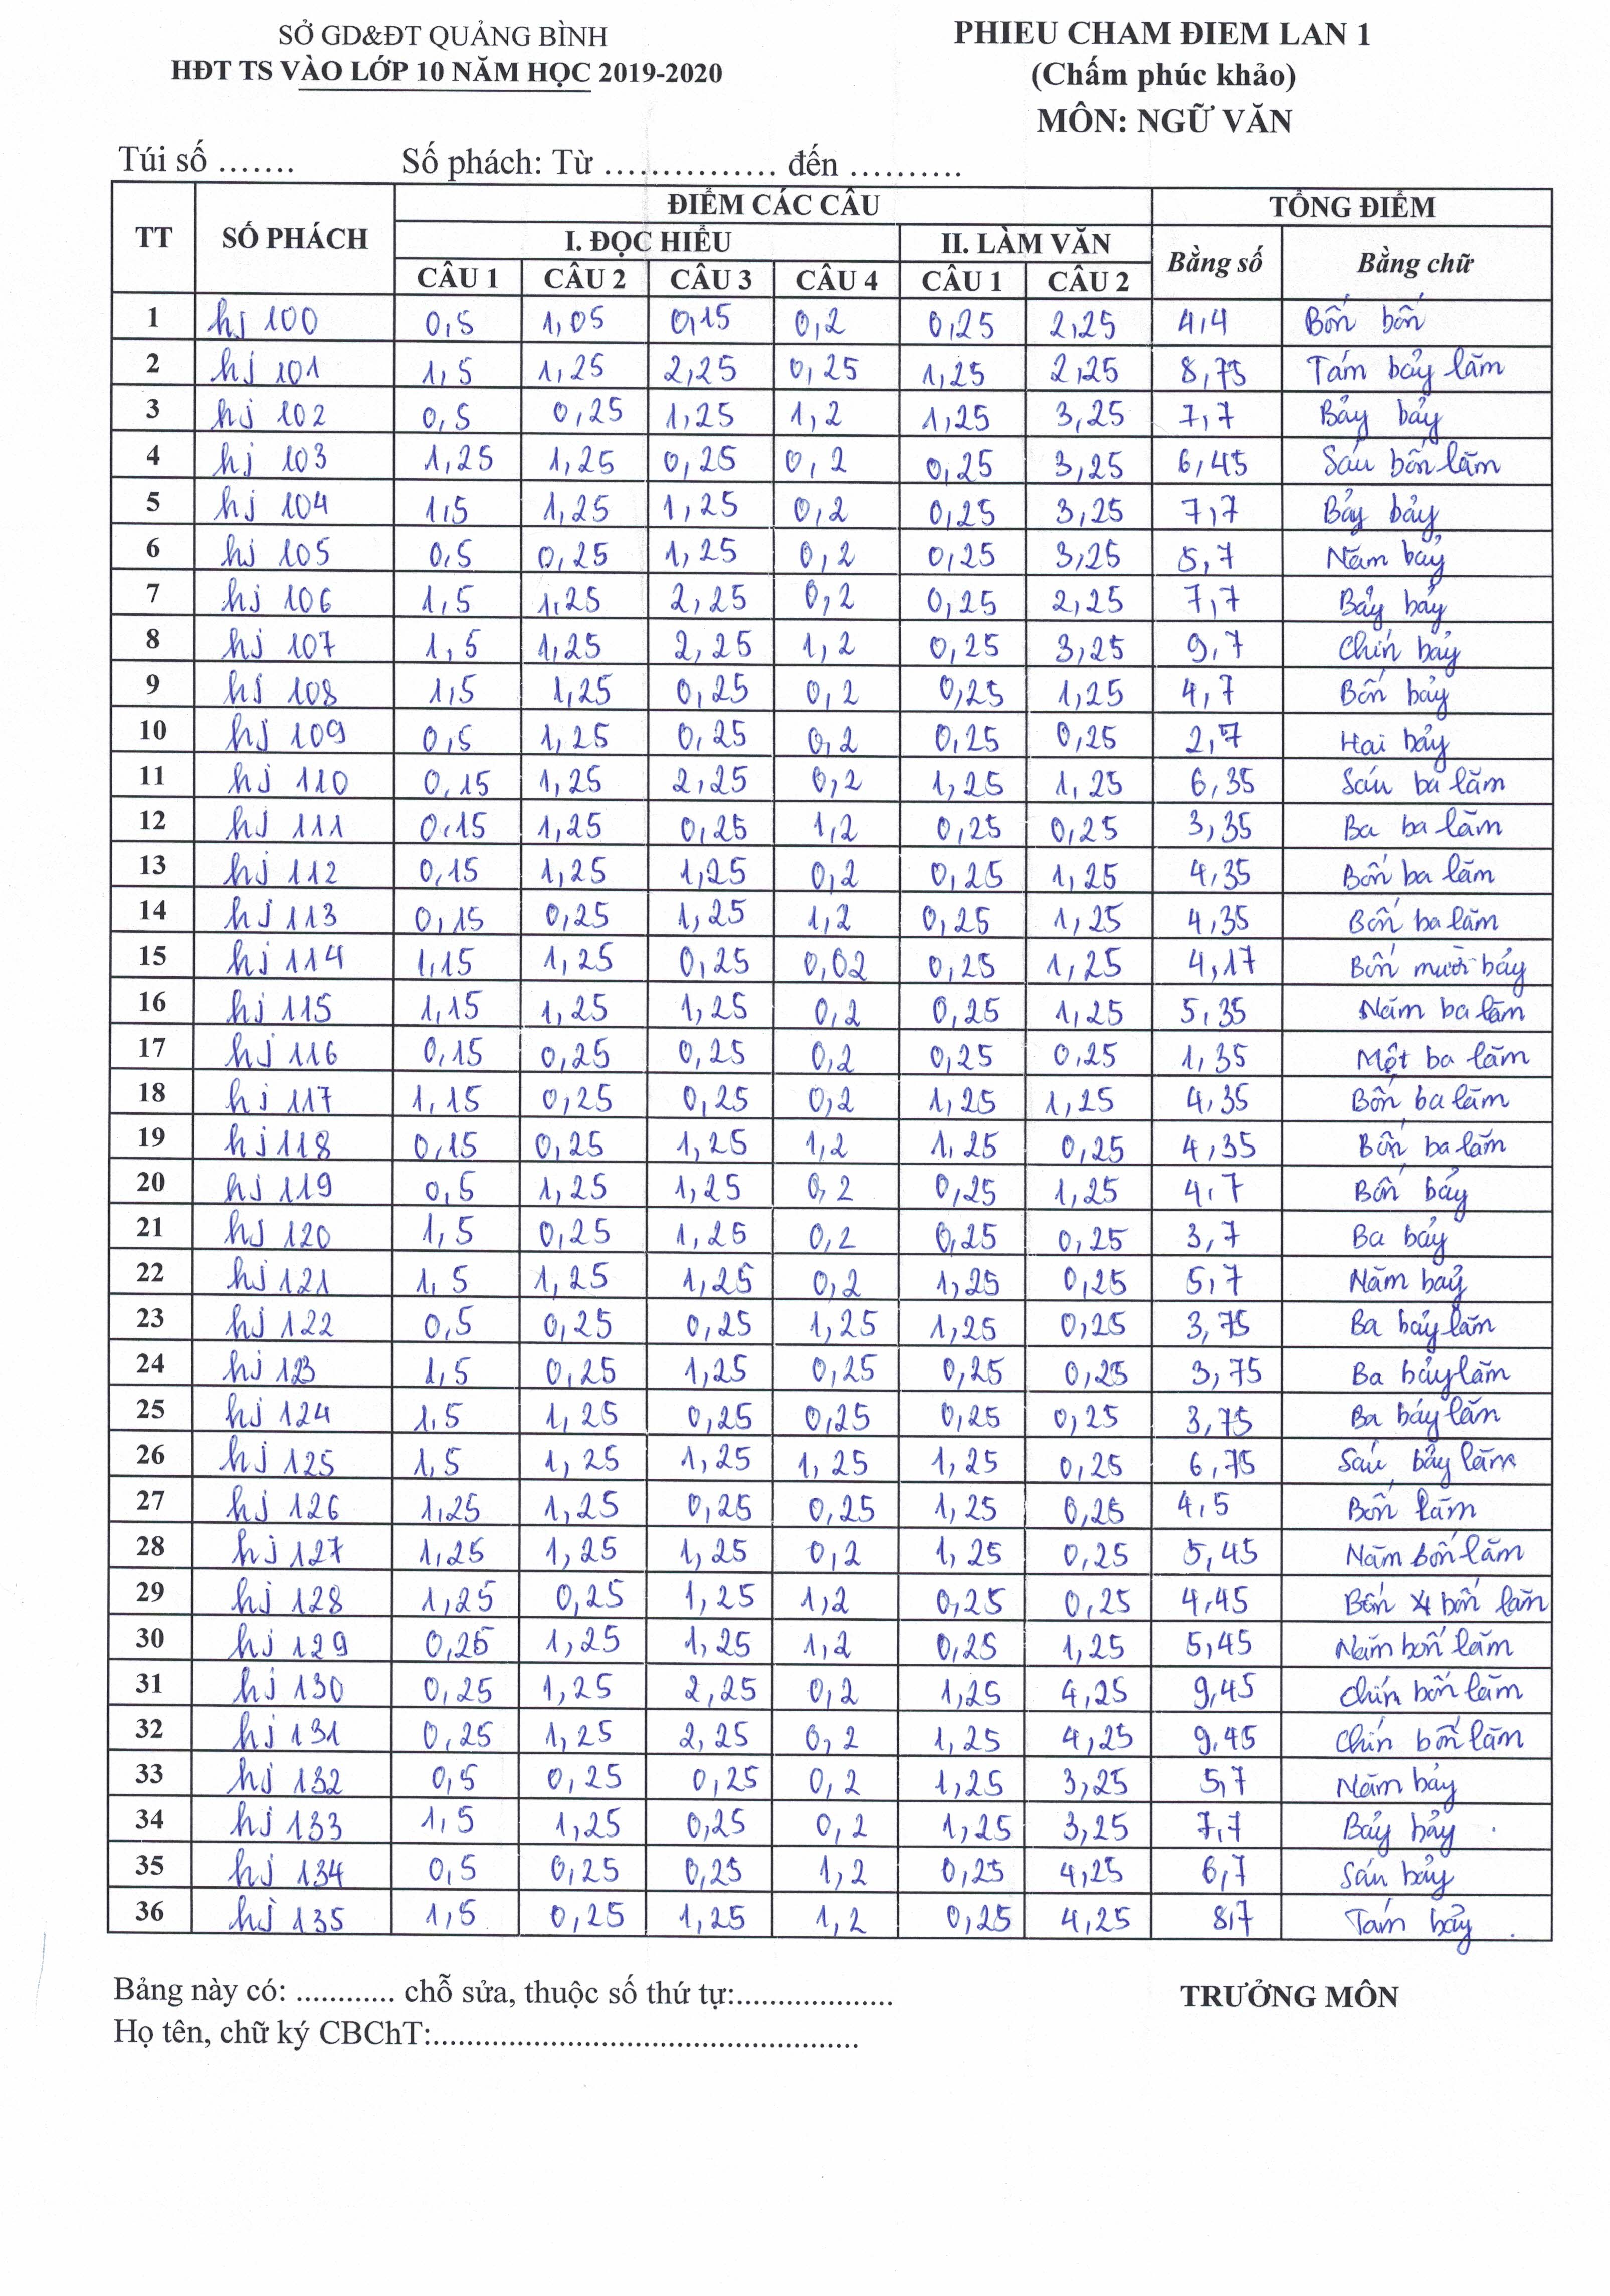 SỞ GD&ĐT QUẢNG BÌNH
HĐT TS VÀO LỚP 10 NĂM HỌC 2019-2020
PHIEU CHAM ĐIEM LAN 1
(Chấm phúc khảo)
MÔN: NGỮ VĂN
Túi số ....... Số phách: Từ ............... đến ..........
TT SỐ PHÁCH ĐIỂM CÁC CÂU TỔNG ĐIỂM
I. ĐỌC HIỂU II. LÀM VĂN Bằng số Bằng chữ
CÂU 1 CÂU 2 CÂU 3 CÂU 4 CÂU 1 CÂU 2
1 hj 100 0,5 1,05 0,15 0,2 0,25 2,25 4,4 Bốn bốn
2 hj 101 1,5 1,25 2,25 0,25 1,25 2,25 8,75 Tám bảy lăm
3 hj 102 0,5 0,25 1,25 1,2 1,25 3,25 7,7 Bảy bảy
4 hj 103 1,25 1,25 0,25 0,2 0,25 3,25 6,45 Sáu bốn lăm
5 hj 104 1,5 1,25 1,25 0,2 0,25 3,25 7,7 Bảy bảy
6 hj 105 0,5 0,25 1,25 0,2 0,25 3,25 5,7 Năm bảy
7 hj 106 1,5 1,25 2,25 0,2 0,25 2,25 7,7 Bảy bảy
8 hj 107 1,5 1,25 2,25 1,2 0,25 3,25 9,7 Chín bảy
9 hj 108 1,5 1,25 0,25 0,2 0,25 1,25 4,7 Bốn bảy
10 hj 109 0,5 1,25 0,25 0,2 0,25 0,25 2,7 Hai bảy
11 hj 110 0,15 1,25 2,25 0,2 1,25 1,25 6,35 Sáu ba lăm
12 hj 111 0,15 1,25 0,25 1,2 0,25 0,25 3,35 Ba ba lăm
13 hj 112 0,15 1,25 1,25 0,2 0,25 1,25 4,35 Bốn ba lăm
14 hj 113 0,15 0,25 1,25 1,2 0,25 1,25 4,35 Bốn ba lăm
15 hj 114 1,15 1,25 0,25 0,02 0,25 1,25 4,17 Bốn mười bảy
16 hj 115 1,15 1,25 1,25 0,2 0,25 1,25 5,35 Năm ba lăm
17 hj 116 0,15 0,25 0,25 0,2 0,25 0,25 1,35 Một ba lăm
18 hj 117 1,15 0,25 0,25 0,2 1,25 1,25 4,35 Bốn ba lăm
19 hj 118 0,15 0,25 1,25 1,2 1,25 0,25 4,35 Bốn ba lăm
20 hj 119 0,5 1,25 1,25 0,2 0,25 1,25 4,7 Bốn bảy
21 hj 120 1,5 0,25 1,25 0,2 0,25 0,25 3,7 Ba bảy
22 hj 121 1,5 1,25 1,25 0,2 1,25 0,25 5,7 Năm bảy
23 hj 122 0,5 0,25 0,25 1,25 1,25 0,25 3,75 Ba bảy lăm
24 hj 123 1,5 0,25 1,25 0,25 0,25 0,25 3,75 Ba bảy lăm
25 hj 124 1,5 1,25 0,25 0,25 0,25 0,25 3,75 Ba bảy lăm
26 hj 125 1,5 1,25 1,25 1,25 1,25 0,25 6,75 Sáu bảy lăm
27 hj 126 1,25 1,25 0,25 0,25 1,25 0,25 4,5 Bốn lăm
28 hj 127 1,25 1,25 1,25 0,2 1,25 0,25 5,45 Năm bốn lăm
29 hj 128 1,25 0,25 1,25 1,2 0,25 0,25 4,45 Bốn bốn lăm
30 hj 129 0,25 1,25 1,25 1,2 0,25 1,25 5,45 Năm bốn lăm
31 hj 130 0,25 1,25 2,25 0,2 1,25 4,25 9,45 Chín bốn lăm
32 hj 131 0,25 1,25 2,25 0,2 1,25 4,25 9,45 Chín bốn lăm
33 hj 132 0,5 0,25 0,25 0,2 1,25 3,25 5,7 Năm bảy
34 hj 133 1,5 1,25 0,25 0,2 1,25 3,25 7,7 Bảy bảy
35 hj 134 0,5 0,25 0,25 1,2 0,25 4,25 6,7 Sáu bảy
36 hj 135 1,5 0,25 1,25 1,2 0,25 4,25 8,7 Tám bảy
Bảng này có: ............ chỗ sửa, thuộc số thứ tự:...................
TRƯỞNG MÔN
Họ tên, chữ ký CBChT:....................................................